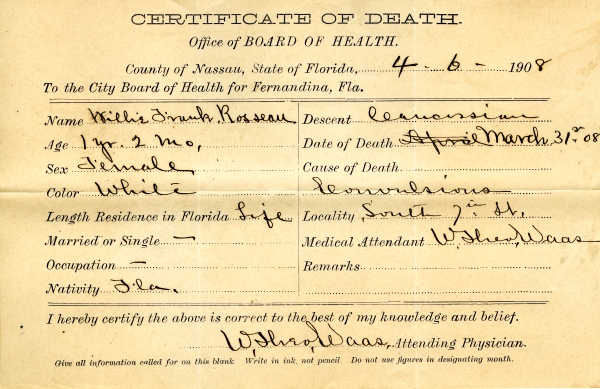 CERTIFICATE OF DEATH.
Office of BOARD OF HEALTH.
County of Nassau, State of Florida, 4 - 6 - 1908
To the City Board of Health for Fernandina, Fla.
Name Willie Frank, Rosseau
Age 1 yr. 2 mo,
Sex Female
Color White
Length Residence in Florida Life
Married or Single —
Occupation —
Nativity Fla.
Descent Caucassian
Date of Death April March, 31st 08
Cause of Death
Convulsions
Locality South 7th St.
Medical Attendant W. Theo, Waas
Remarks
I hereby certify the above is correct to the best of my knowledge and belief.
W. Theo, Waas, Attending Physician.
Give all information called for on this blank. Write in ink, not pencil. Do not use figures in designating month.